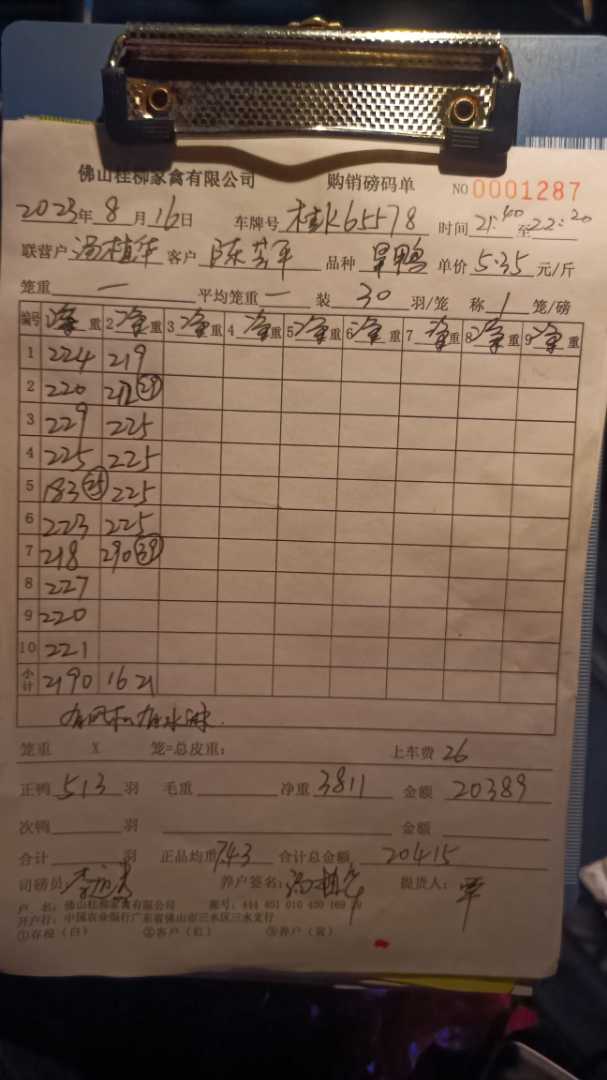 佛山桂柳家禽有限公司 购销磅码单 NO 0001287
2023年 8 月 16 日 车牌号 桂K65578 时间 21:40 至 22:20
联营户 冯植华 客户 陈 平 品种 旱鸭 单价 5.35 元/斤
笼重 — 平均笼重 — 装 30 羽/笼 称 1 笼/磅
编号 净重 2 净重 3 净重 4 净重 5 净重 6 净重 7 净重 8 净重 9 净重
1 224 219
2 220 212 29
3 229 225
4 225 225
5 183 25 225
6 223 225
7 218 290 39
8 227
9 220
10 221
小计 2190 1621
有风机有水淋.
笼重 X 笼=总皮重: 上车费 26
正鸭 513 羽 毛重 净重 3811 金额 20389
次鸭 羽 金额
合计 羽 正品均重 7.43 合计总金额 20415
司磅员 李 养户签名: 冯植华 提货人: 覃
户 名: 佛山桂柳家禽有限公司 账号:
开户行: 中国农业银行广东省佛山市三水区三水支行
①存根(白) ②客户(红) ③养户(黄)